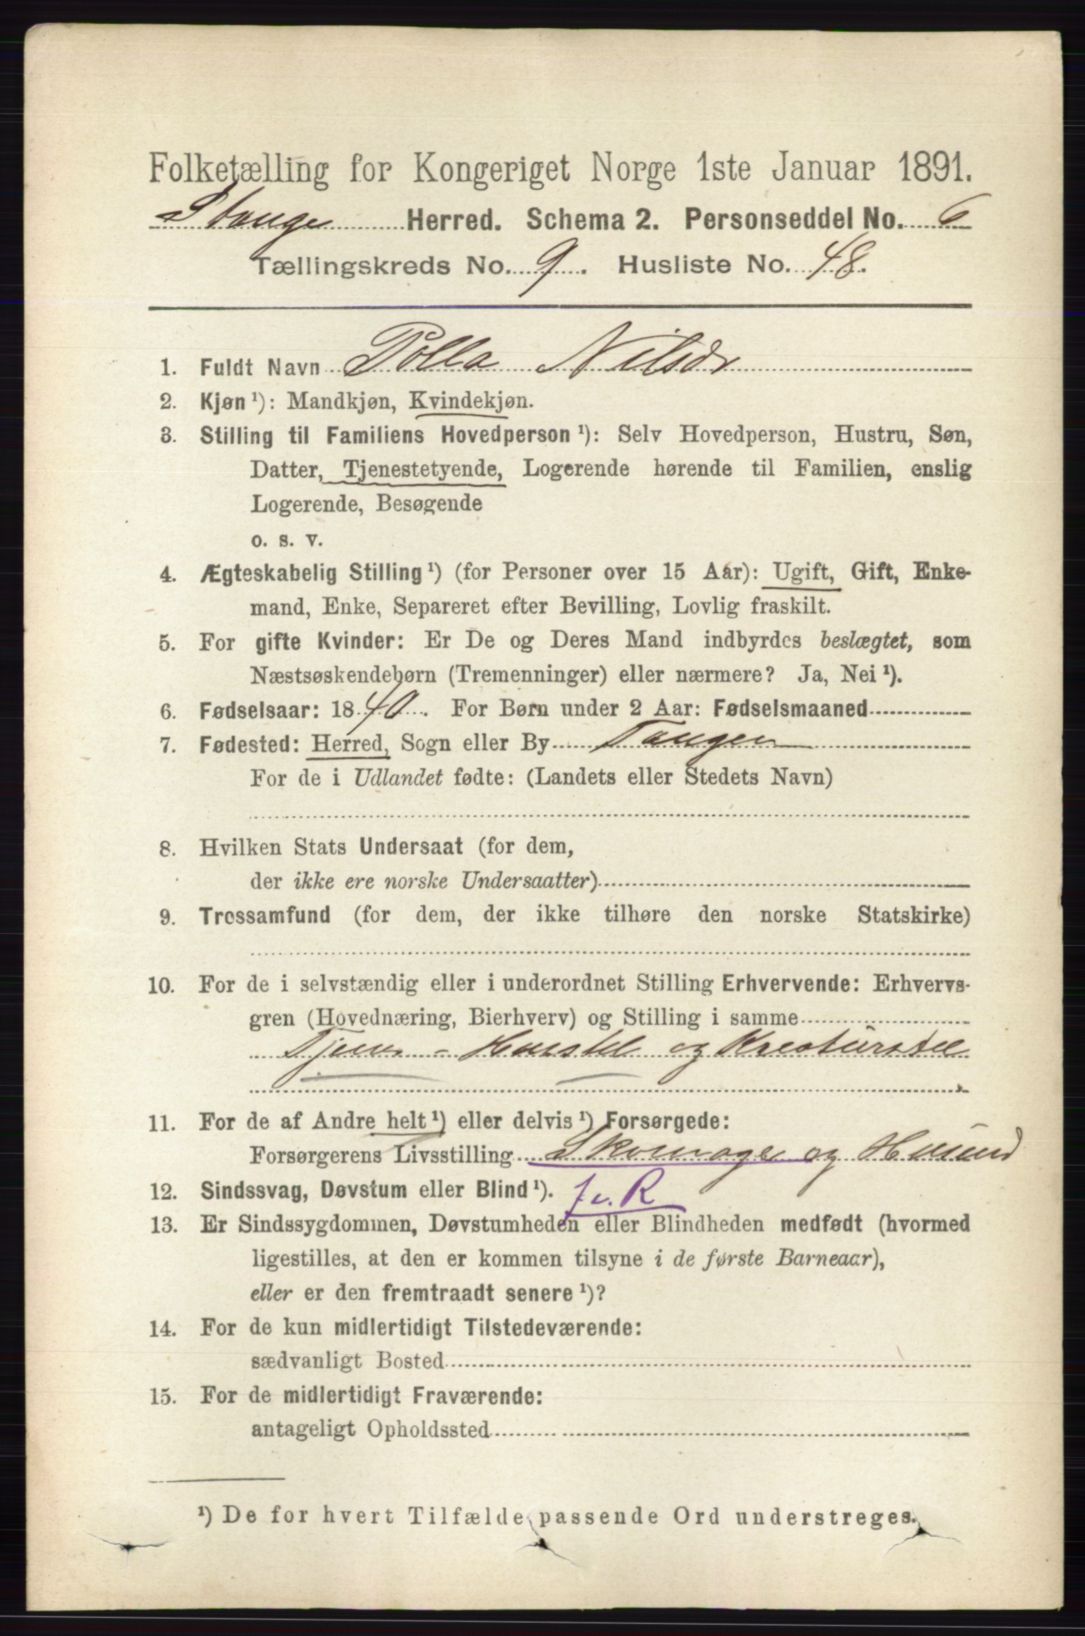 Folketælling for Kongeriget Norge 1ste Januar 1891.
Stange Herred. Schema 2. Personseddel No. 6
Tællingskreds No. 9. Husliste No. 48.
1. Fuldt Navn Polla Nilsdr
2. Kjøn ¹): Mandkjøn, Kvindekjøn.
3. Stilling til Familiens Hovedperson ¹): Selv Hovedperson, Hustru, Søn,
Datter, Tjenestetyende, Logerende hørende til Familien, enslig
Logerende, Besøgende
o. s. v.
4. Ægteskabelig Stilling ¹) (for Personer over 15 Aar): Ugift, Gift, Enke-
mand, Enke, Separeret efter Bevilling, Lovlig fraskilt.
5. For gifte Kvinder: Er De og Deres Mand indbyrdes beslægtet, som
Næstsøskendebørn (Tremenninger) eller nærmere? Ja, Nei ¹).
6. Fødselsaar: 1840. For Børn under 2 Aar: Fødselsmaaned
7. Fødested: Herred, Sogn eller By Tangen
For de i Udlandet fødte: (Landets eller Stedets Navn)
8. Hvilken Stats Undersaat (for dem,
der ikke ere norske Undersaatter)
9. Trossamfund (for dem, der ikke tilhøre den norske Statskirke)
10. For de i selvstændig eller i underordnet Stilling Erhvervende: Erhvervs-
gren (Hovednæring, Bierhverv) og Stilling i samme
og Kreaturstel
11. For de af Andre helt ¹) eller delvis ¹) Forsørgede:
Forsørgerens Livsstilling Skomager og Husmd
12. Sindssvag, Døvstum eller Blind ¹).
13. Er Sindssygdommen, Døvstumheden eller Blindheden medfødt (hvormed
ligestilles, at den er kommen tilsyne i de første Barneaar),
eller er den fremtraadt senere ¹)?
14. For de kun midlertidigt Tilstedeværende:
sædvanligt Bosted
15. For de midlertidigt Fraværende:
antageligt Opholdssted
¹) De for hvert Tilfælde passende Ord understreges.